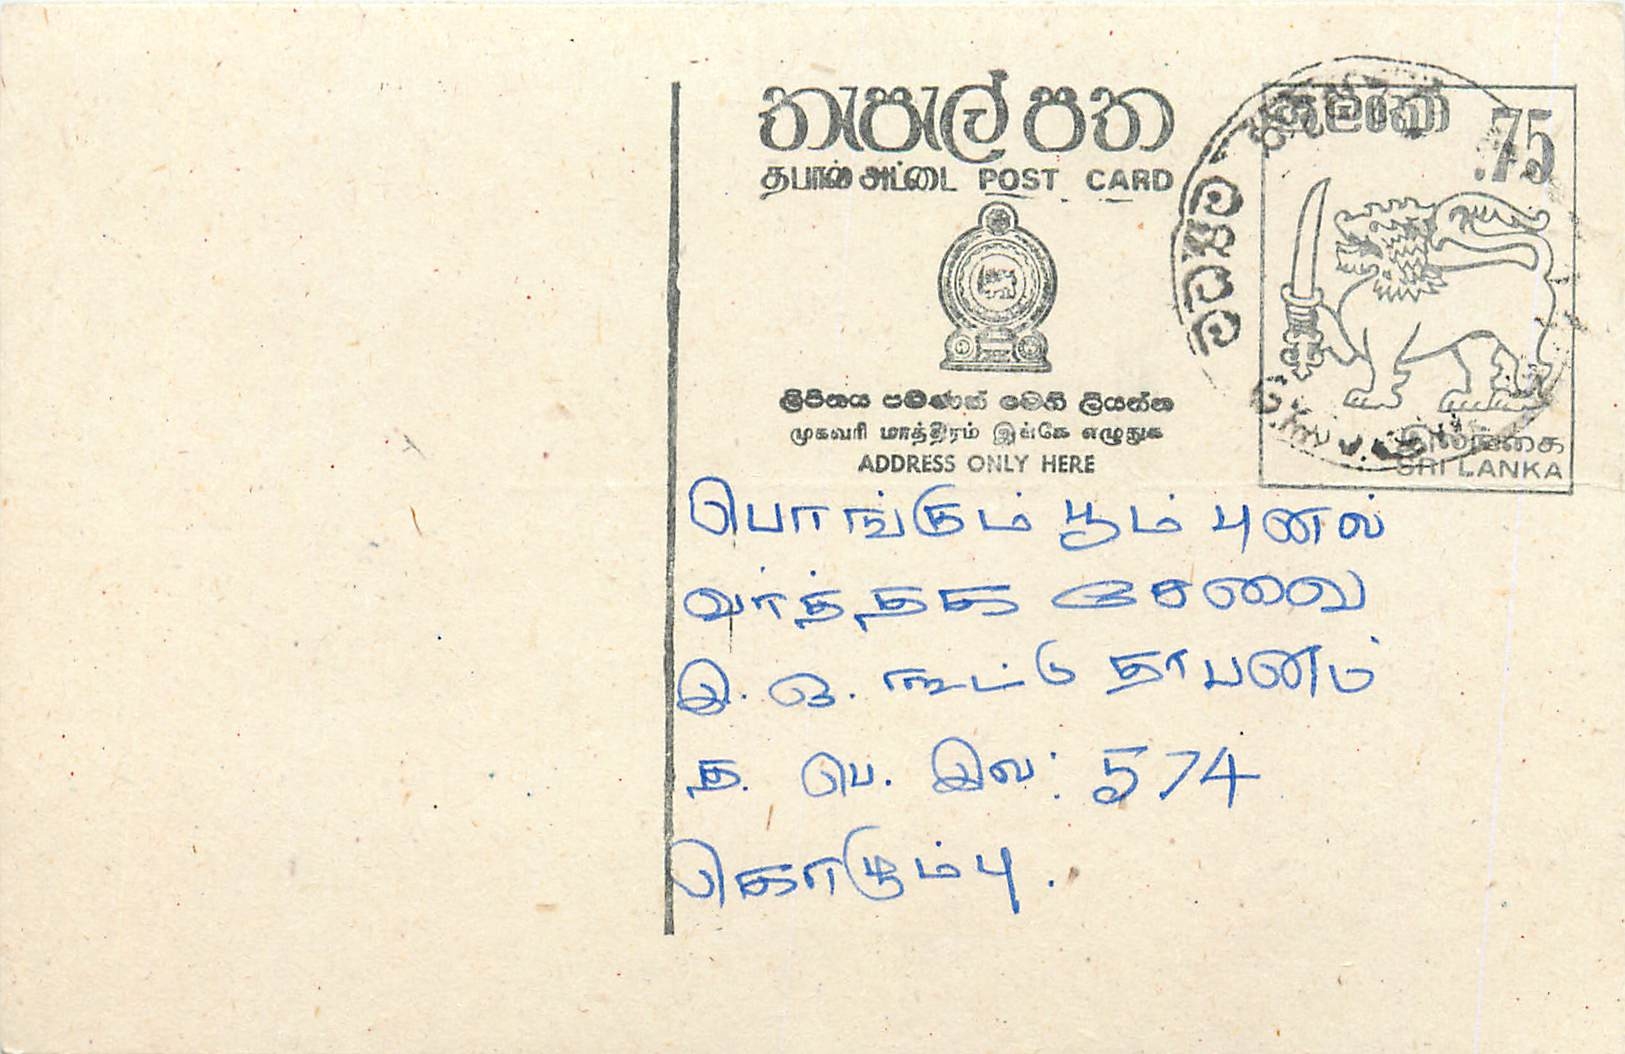 තැපැල් පත
தபால் அட்டை POST CARD
ලිපිනය පමණක් මෙහි ලියන්න
முகவரி மாத்திரம் இங்கே எழுதுக
ADDRESS ONLY HERE
.75
இலங்கை
SRI LANKA
பொங்கும் பூம் புனல்
வர்த்தக சேவை
இ. ஒ. கூட்டு தாபனம்
த. பெ. இல: 574
கொழும்பு.